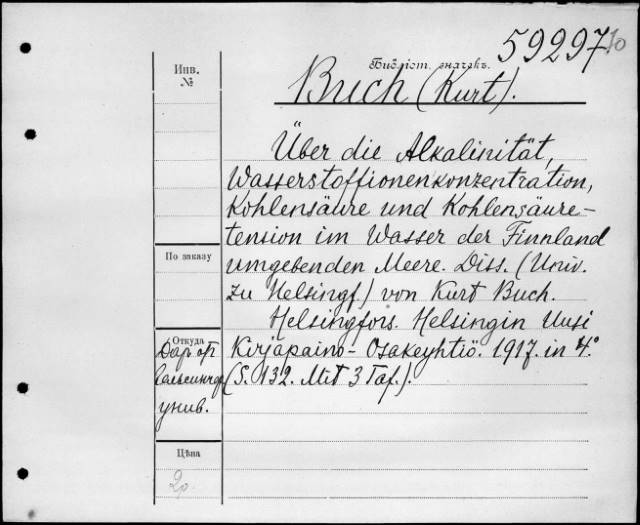 59297/10
Библіот. значекъ.
Инв.
№
Buch (Kurt).
Über die Alkalinität,
Wasserstoffionenkonzentration,
Kohlensäure und Kohlensäure-
tension im Wasser der Finnland
umgebenden Meere. Diss. (Univ.
zu Helsingf.) von Kurt Buch.
Helsingfors. Helsingin Uusi
Kirjapaino-Osakeyhtiö. 1917. in 4°.
(S. 132. Mit 3 Taf.).
По заказу
Откуда
Даръ от
унив.
Цѣна
2р